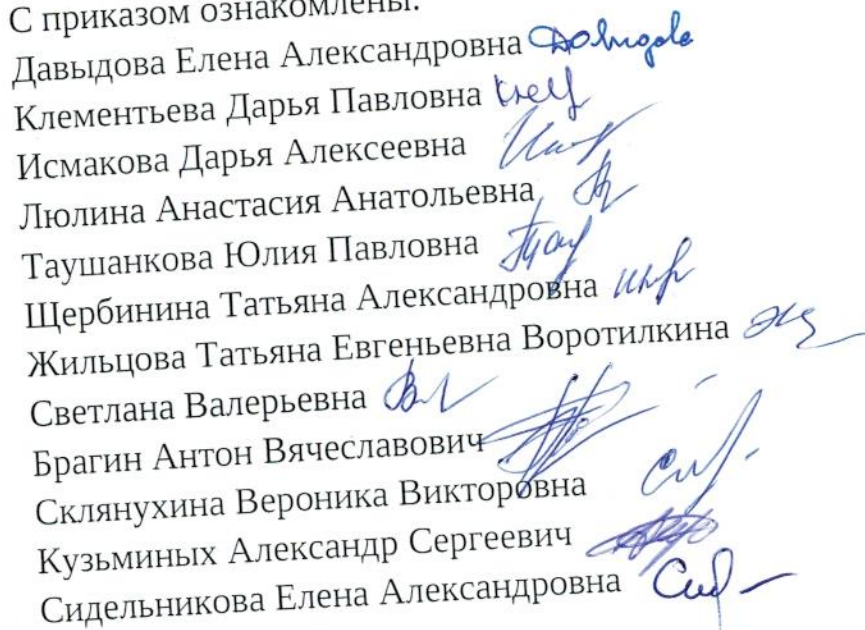 С приказом ознакомлены:
Давыдова Елена Александровна Давыдова
Клементьева Дарья Павловна
Исмакова Дарья Алексеевна
Люлина Анастасия Анатольевна
Таушанкова Юлия Павловна
Щербинина Татьяна Александровна
Жильцова Татьяна Евгеньевна Воротилкина
Светлана Валерьевна
Брагин Антон Вячеславович
Склянухина Вероника Викторовна
Кузьминых Александр Сергеевич
Сидельникова Елена Александровна